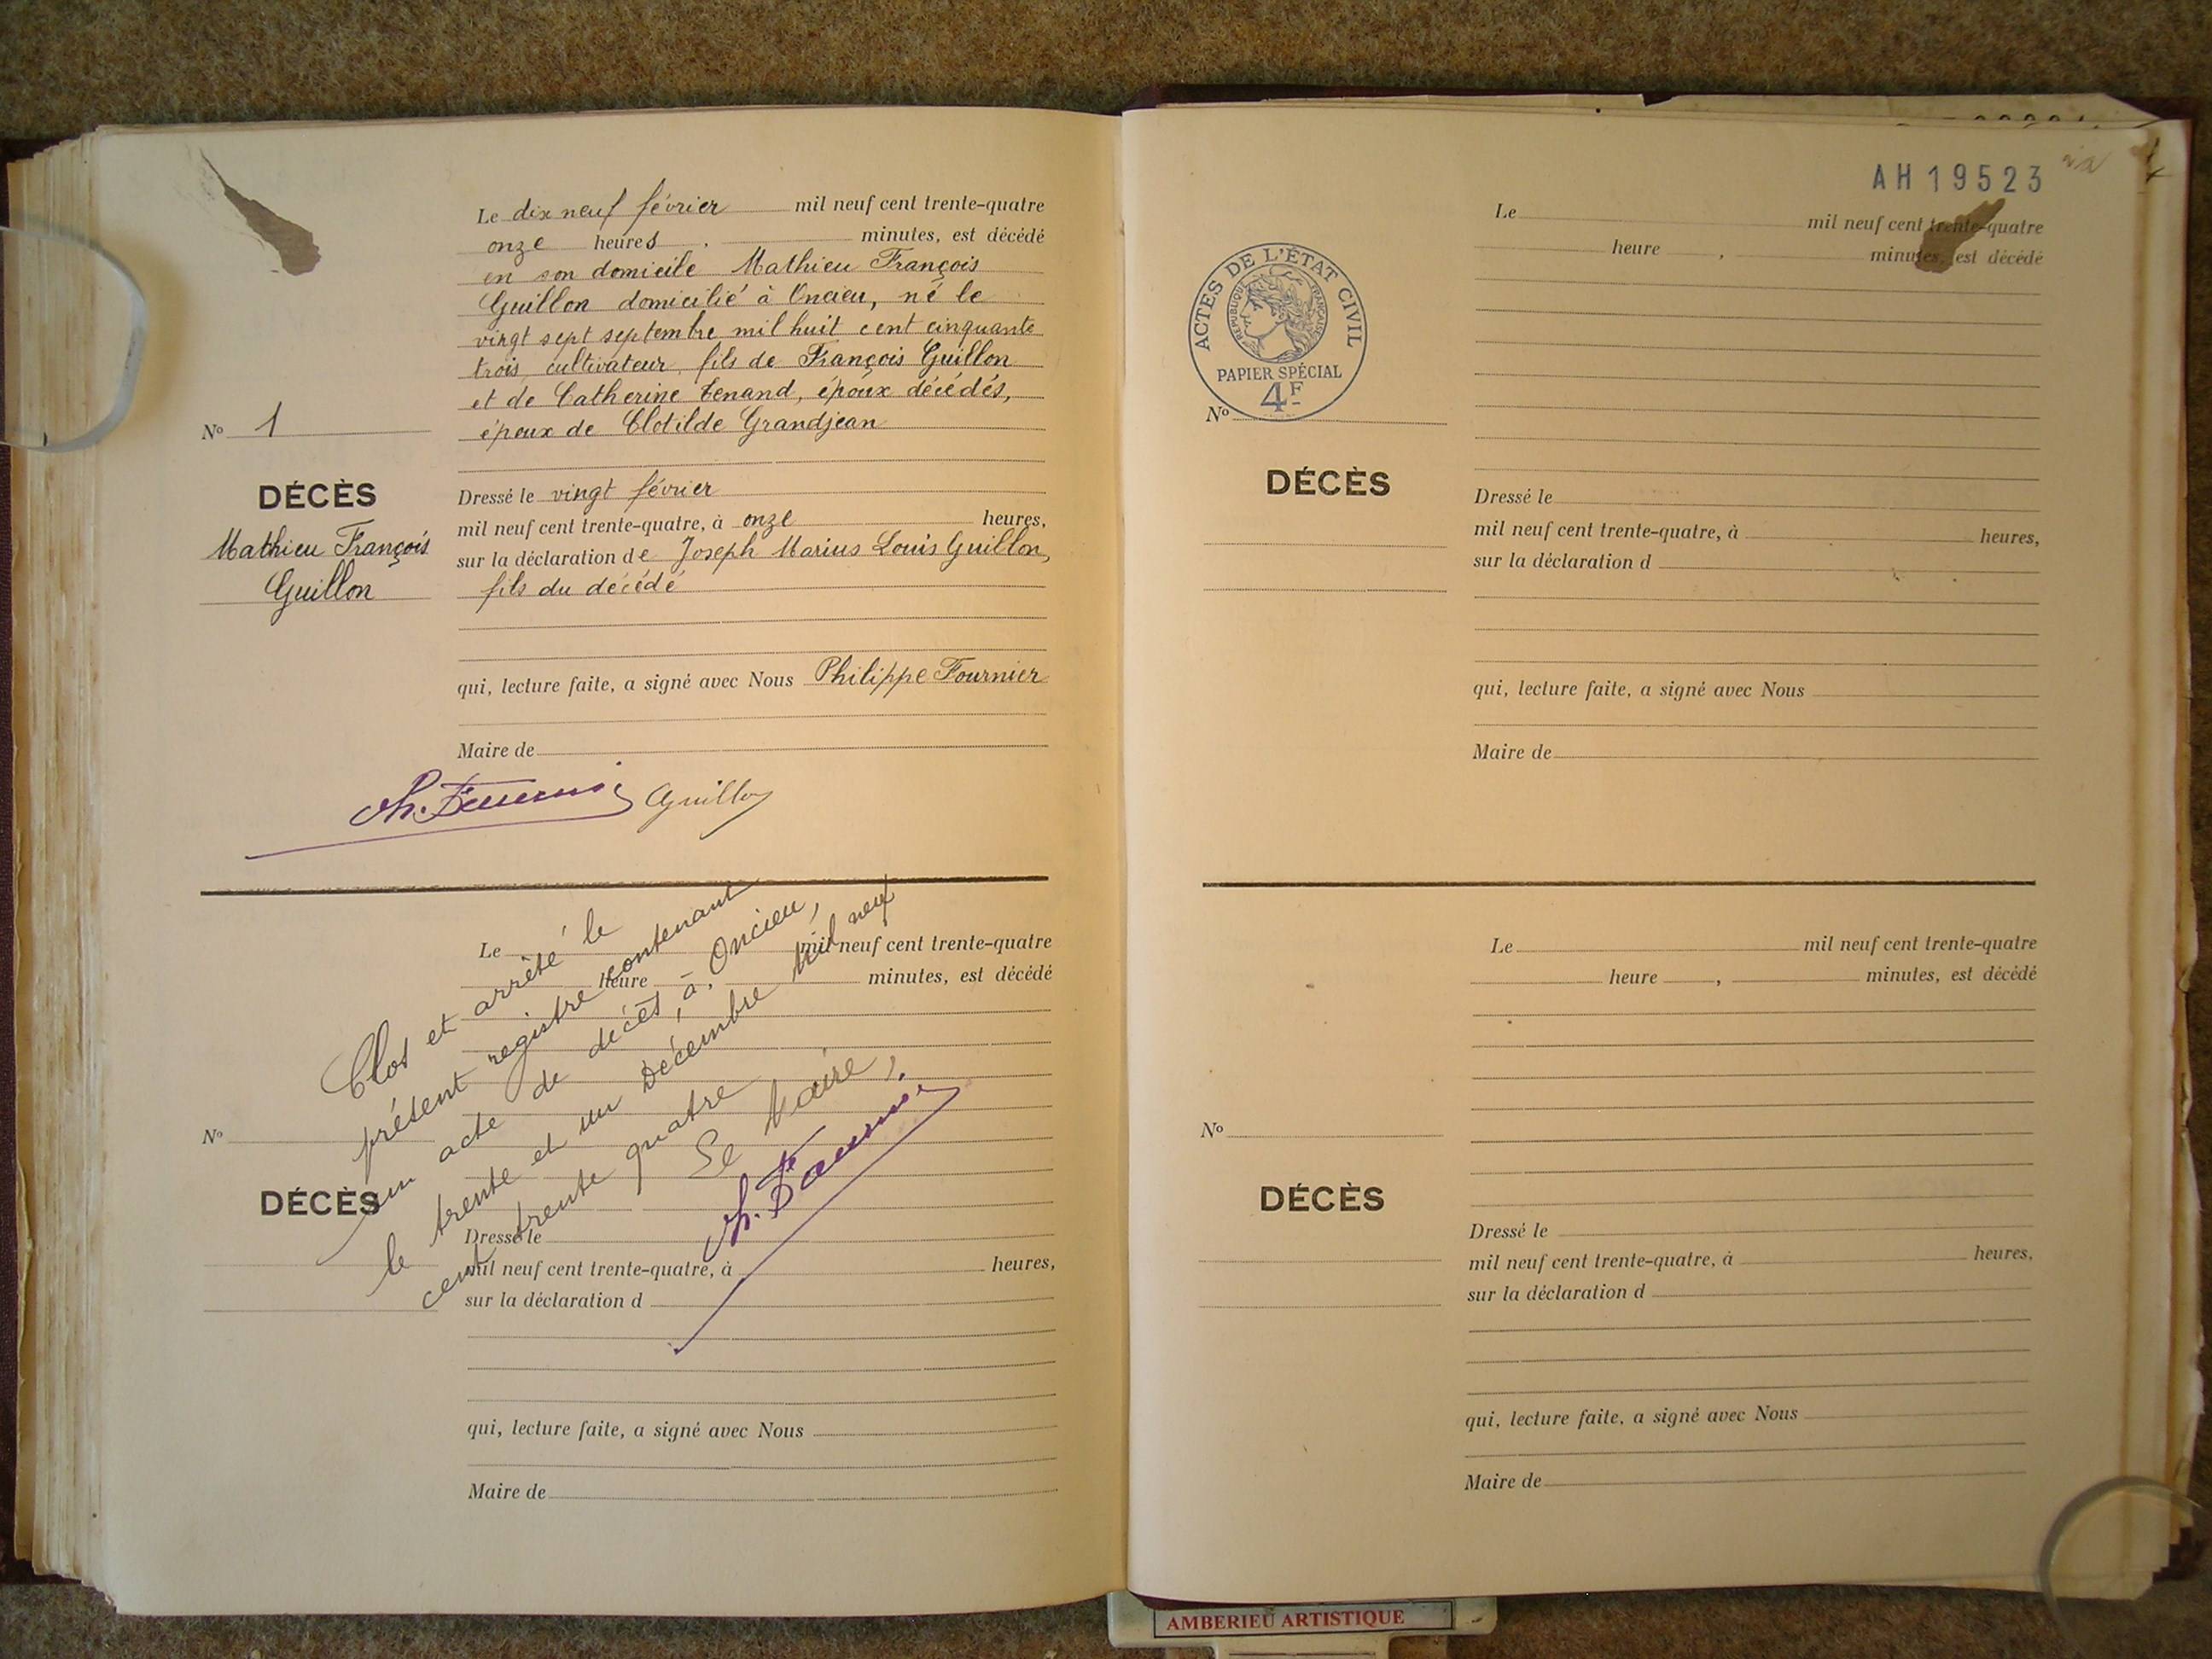 Le dix neuf février mil neuf cent trente-quatre
onze heures , minutes, est décédé
en son domicile Mathieu François
Guillon domicilié à Oncieu, né le
vingt sept septembre mil huit cent cinquante
trois, cultivateur, fils de François Guillon
et de Catherine Tenand, époux décédés,
époux de Clotilde Grandjean
No 1
DÉCÈS
Mathieu François
Guillon
Dressé le vingt février
mil neuf cent trente-quatre, à onze heures,
sur la déclaration de Joseph Marius Louis Guillon,
fils du décédé
qui, lecture faite, a signé avec Nous Philippe Fournier
Maire de
Ph. Fournier Guillon
Le mil neuf cent trente-quatre
heure , minutes, est décédé
Clos et arrêté le
présent registre contenant
un acte de décès, à Oncieu,
le trente et un Décembre Mil neuf
cent trente quatre
Le Maire,
Ph. Fournier
No
DÉCÈS
Dressé le
mil neuf cent trente-quatre, à heures,
sur la déclaration d
qui, lecture faite, a signé avec Nous
Maire de
AH19523
Le mil neuf cent trente-quatre
heure , minutes, est décédé
ACTES DE L'ÉTAT CIVIL
RÉPUBLIQUE FRANÇAISE
PAPIER SPÉCIAL
4F
No
DÉCÈS
Dressé le
mil neuf cent trente-quatre, à heures,
sur la déclaration d
qui, lecture faite, a signé avec Nous
Maire de
Le mil neuf cent trente-quatre
heure , minutes, est décédé
No
DÉCÈS
Dressé le
mil neuf cent trente-quatre, à heures,
sur la déclaration d
qui, lecture faite, a signé avec Nous
Maire de
AMBERIEU ARTISTIQUE